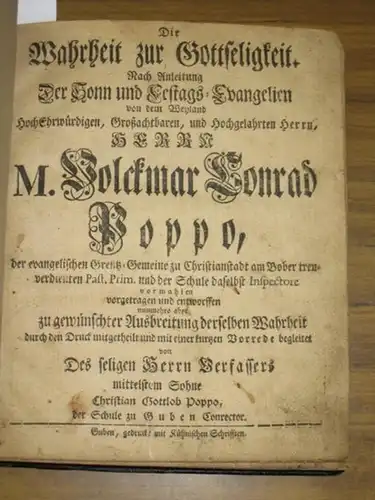 Die
Wahrheit zur Gottseligkeit.
Nach Anleitung
Der Sonn und Festags-Evangelien
von dem Weyland
HochEhrwürdigen, Großachtbaren, und Hochgelahrten Herrn,
HERRN
M. Volckmar Conrad
Poppo,
der evangelischen Grentz-Gemeine zu Christianstadt am Bober treu-
verdienten Past. Prim. und der Schule daselbst Inspectore
vormahlen
vorgetragen und entworffen
nunmehro aber
zu gewünschter Ausbreitung derselben Wahrheit
durch den Druck mitgetheilt und mit einer kurtzen Vorrede begleitet
von
Des seligen Herrn Verfassers
mittelstem Sohne
Christian Gottlob Poppo,
der Schule zu Guben Conrector.
Guben, gedruckt mit Kühnischen Schrifften.